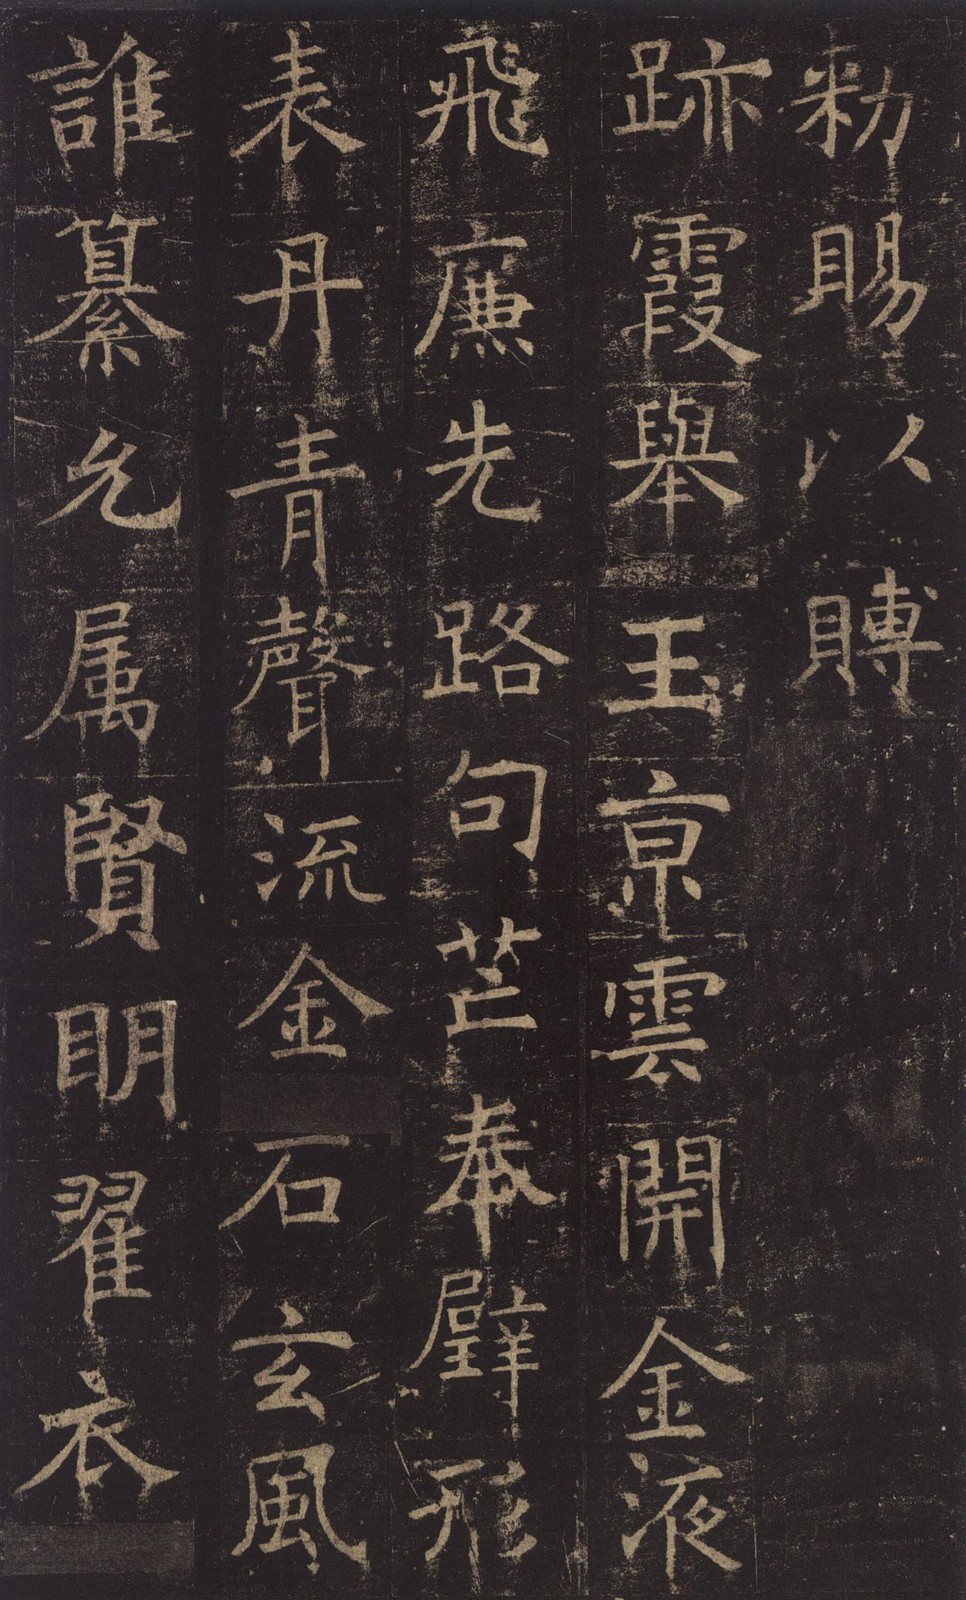 勑賜以賻
跡霞舉玉京雲開金液
飛廉先路句芒奉壁形
表丹青聲流金石玄風
誰纂允属賢明翟衣